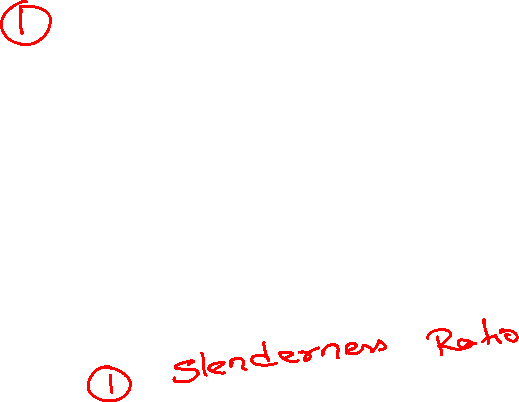 ①
① Slenderness Ratio